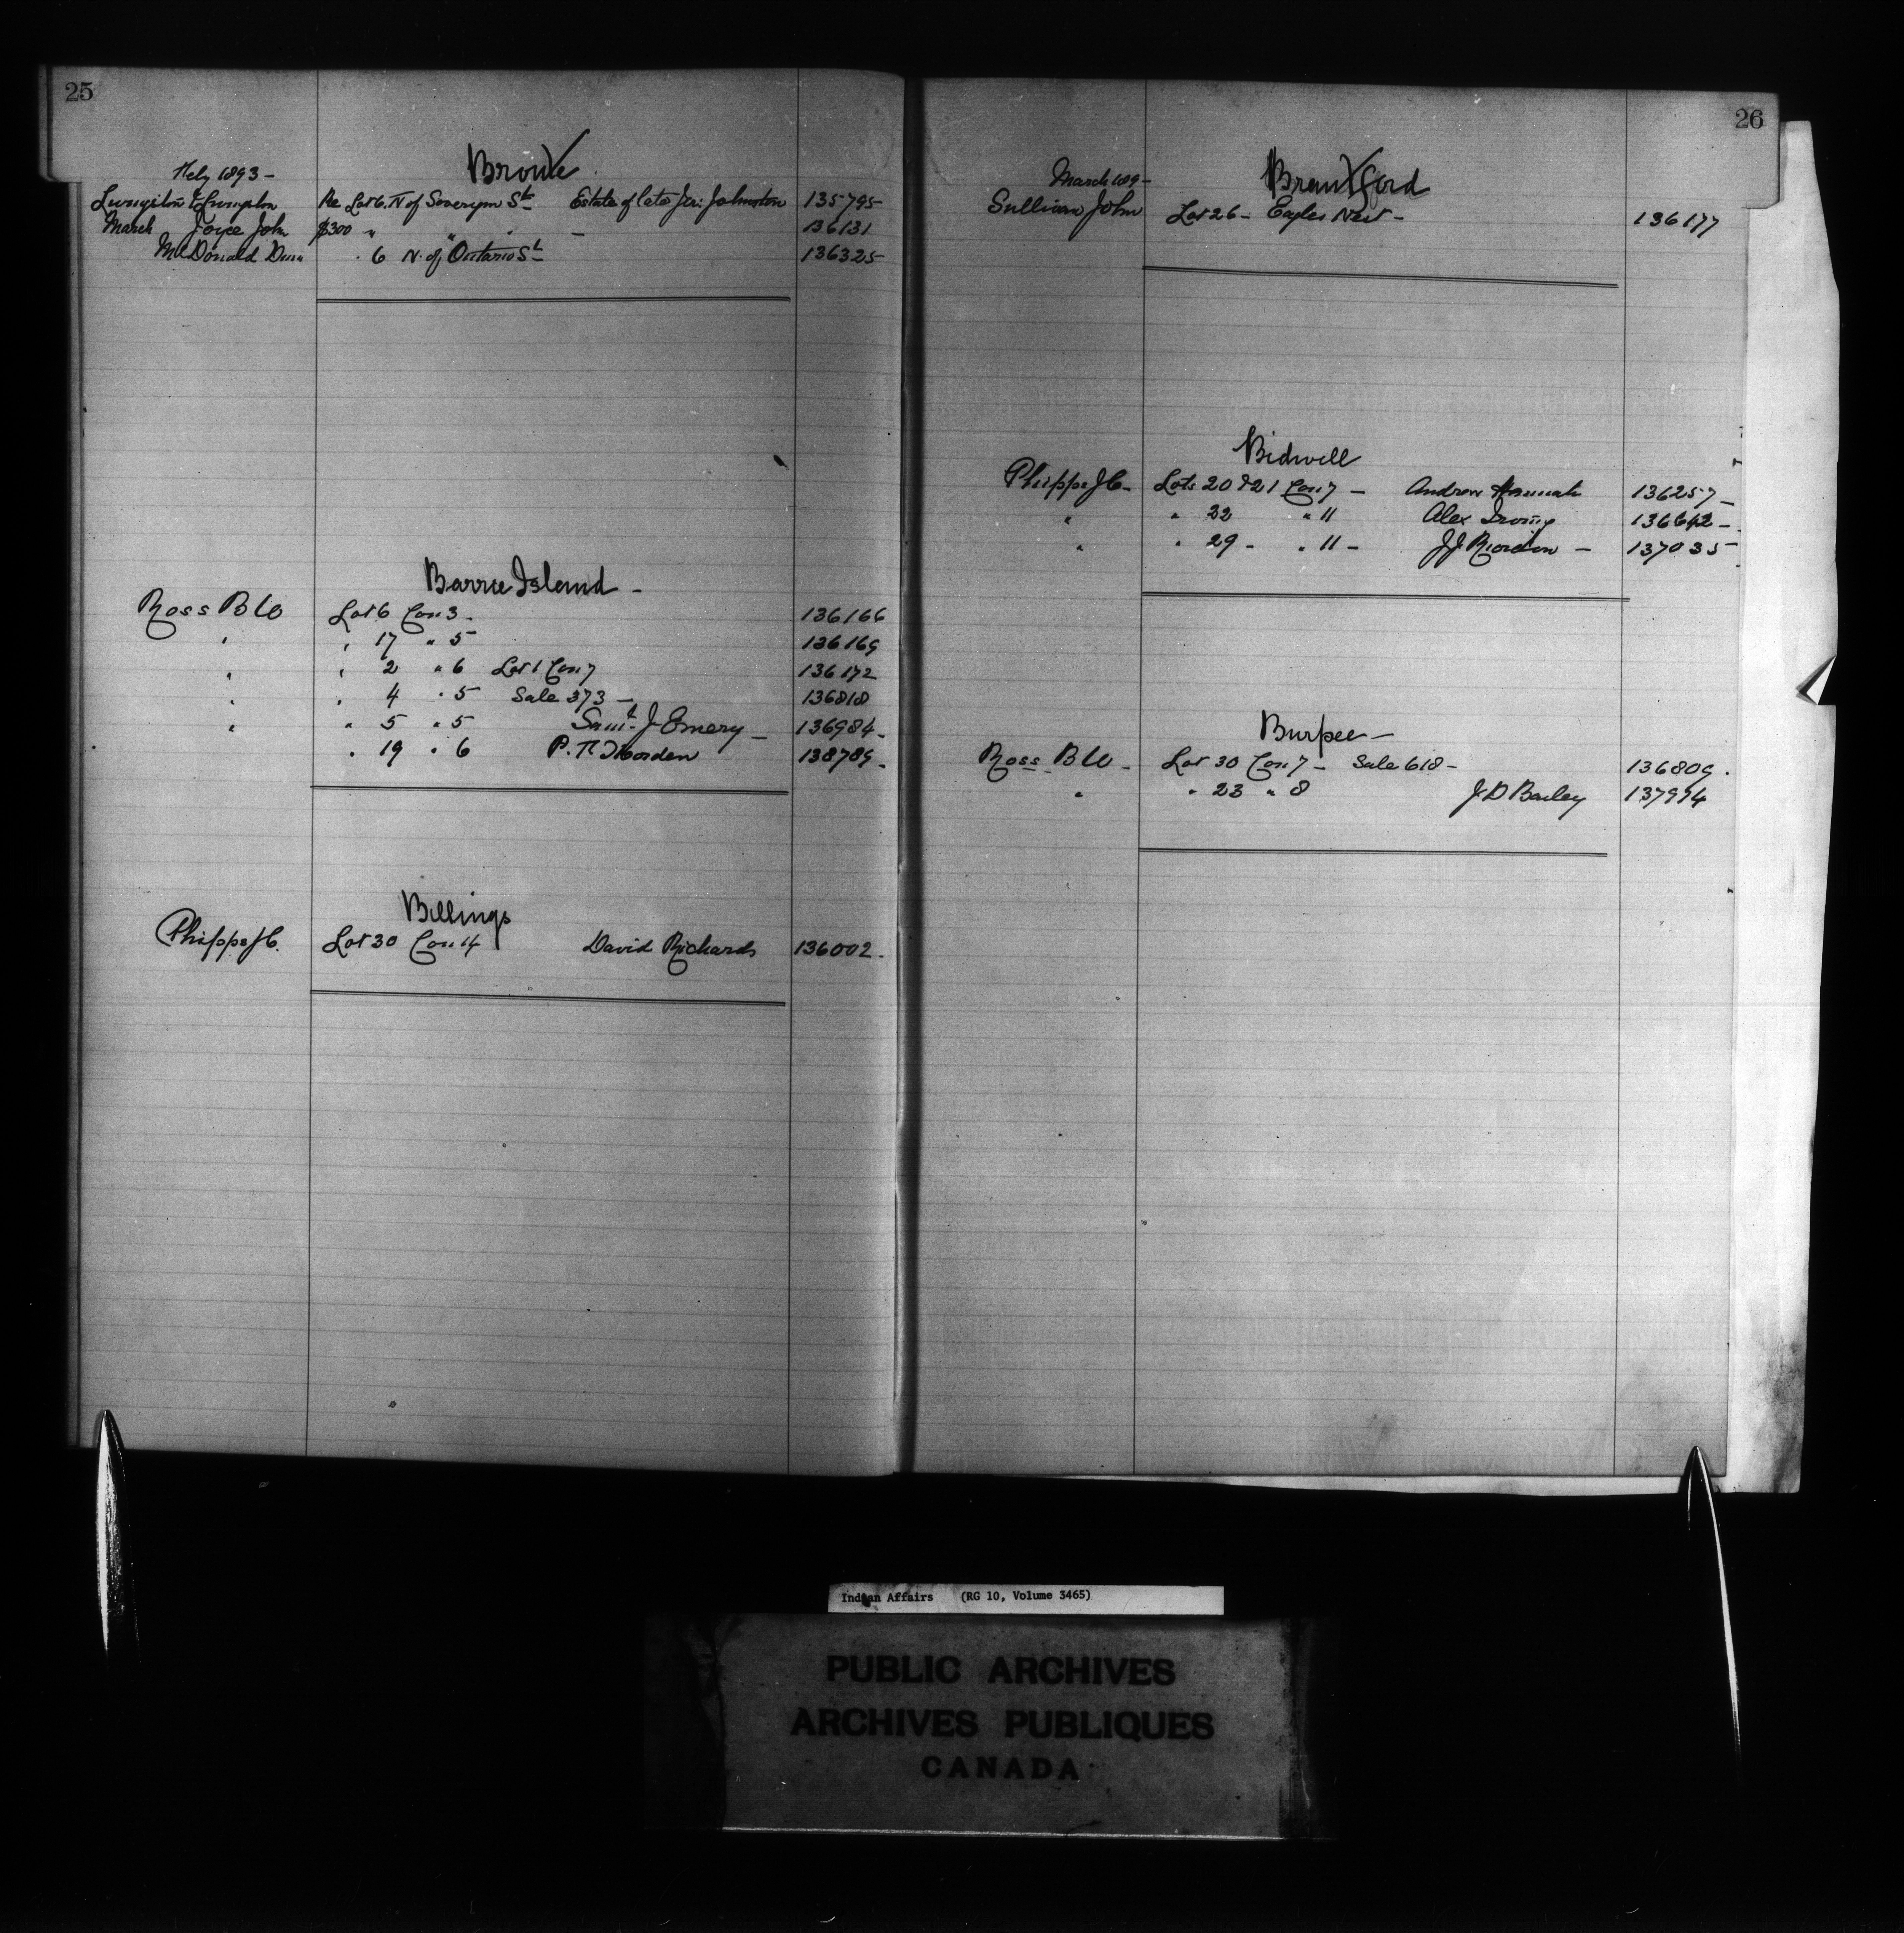 25
Bronte
Feby 1893 -
Livingston & Livingston Re Lot 6. N of Sovereign St Estate of late Jer: Johnston 135795
March Joyce John $300 " " " - 136131
McDonald " 6 N. of Ontario St 136325
Barrie Island -
Ross B Lo Lot 6 Con 3 - 136166
" " 17 " 5 136169
" " 2 " 6 Lot 1 Con 7 136172
" " 4 " 5 Sale 373 - 136818
" " 5 " 5 Saml J Emery - 136984 -
" 19 " 6 P. 138789 -
Billings
Phipps J C. Lot 30 Con 14 David Richards 136002 -
26
Brantford
March 189-
Sullivan John Lot 26 - Eagles Nest - 136177
Bidwell
Phipps J C - Lots 20 & 21 Con 7 - Andrew Hannah 136257 -
" " 22 " 11 Alex Irving 136642 -
" " 29 - " 11 - J J Riordon - 137035 -
Burpee -
Ross B Lo - Lot 30 Con 7 - Sale 618 - 136809 .
" " 23 " 8 J D Bailey 137994
Indian Affairs (RG 10, Volume 3465)
PUBLIC ARCHIVES
ARCHIVES PUBLIQUES
CANADA